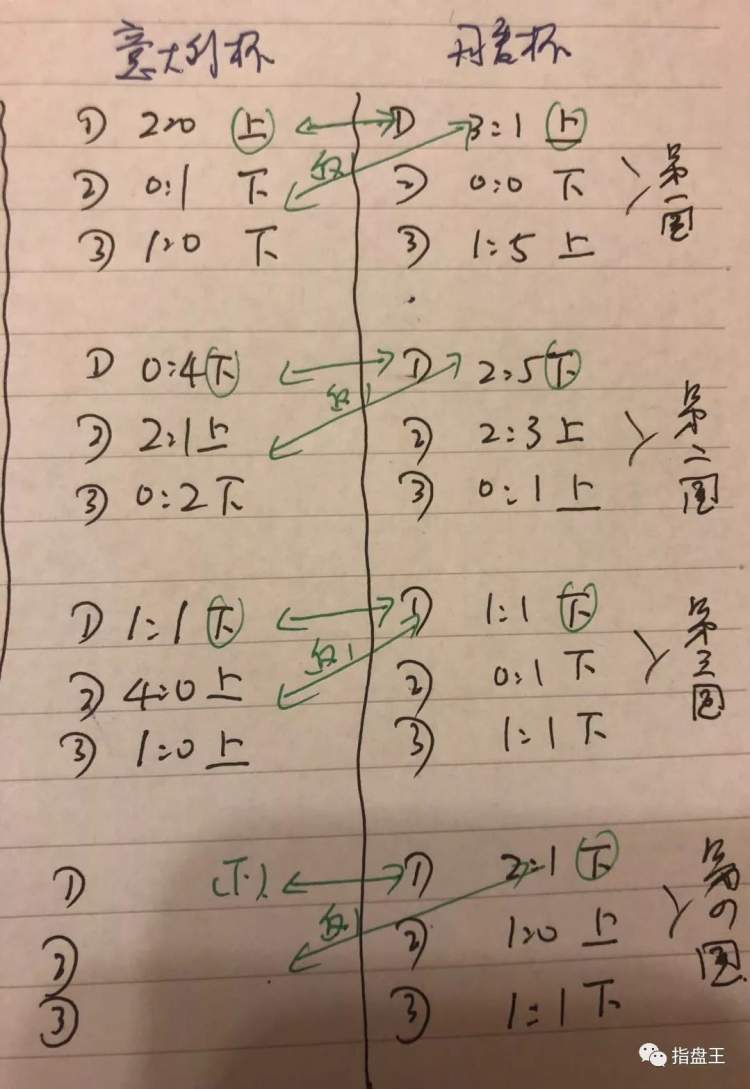 意大利杯 丹麦杯
① 2:0 上 ① 3:1 上
反
② 0:1 下 ② 0:0 下 第一图
③ 1:0 下 ③ 1:5 上
① 0:4 下 ① 2:5 下
反!
② 2:1 上 ② 2:3 上 第二图
③ 0:2 下 ③ 0:1 上
① 1:1 下 ① 1:1 下
反!
② 4:0 上 ② 0:1 下 第三图
③ 1:0 上 ③ 1:1 下
① (下) ① 2:1 下
反!
② ② 1:0 上 第四图
③ ③ 1:1 下
指盘王